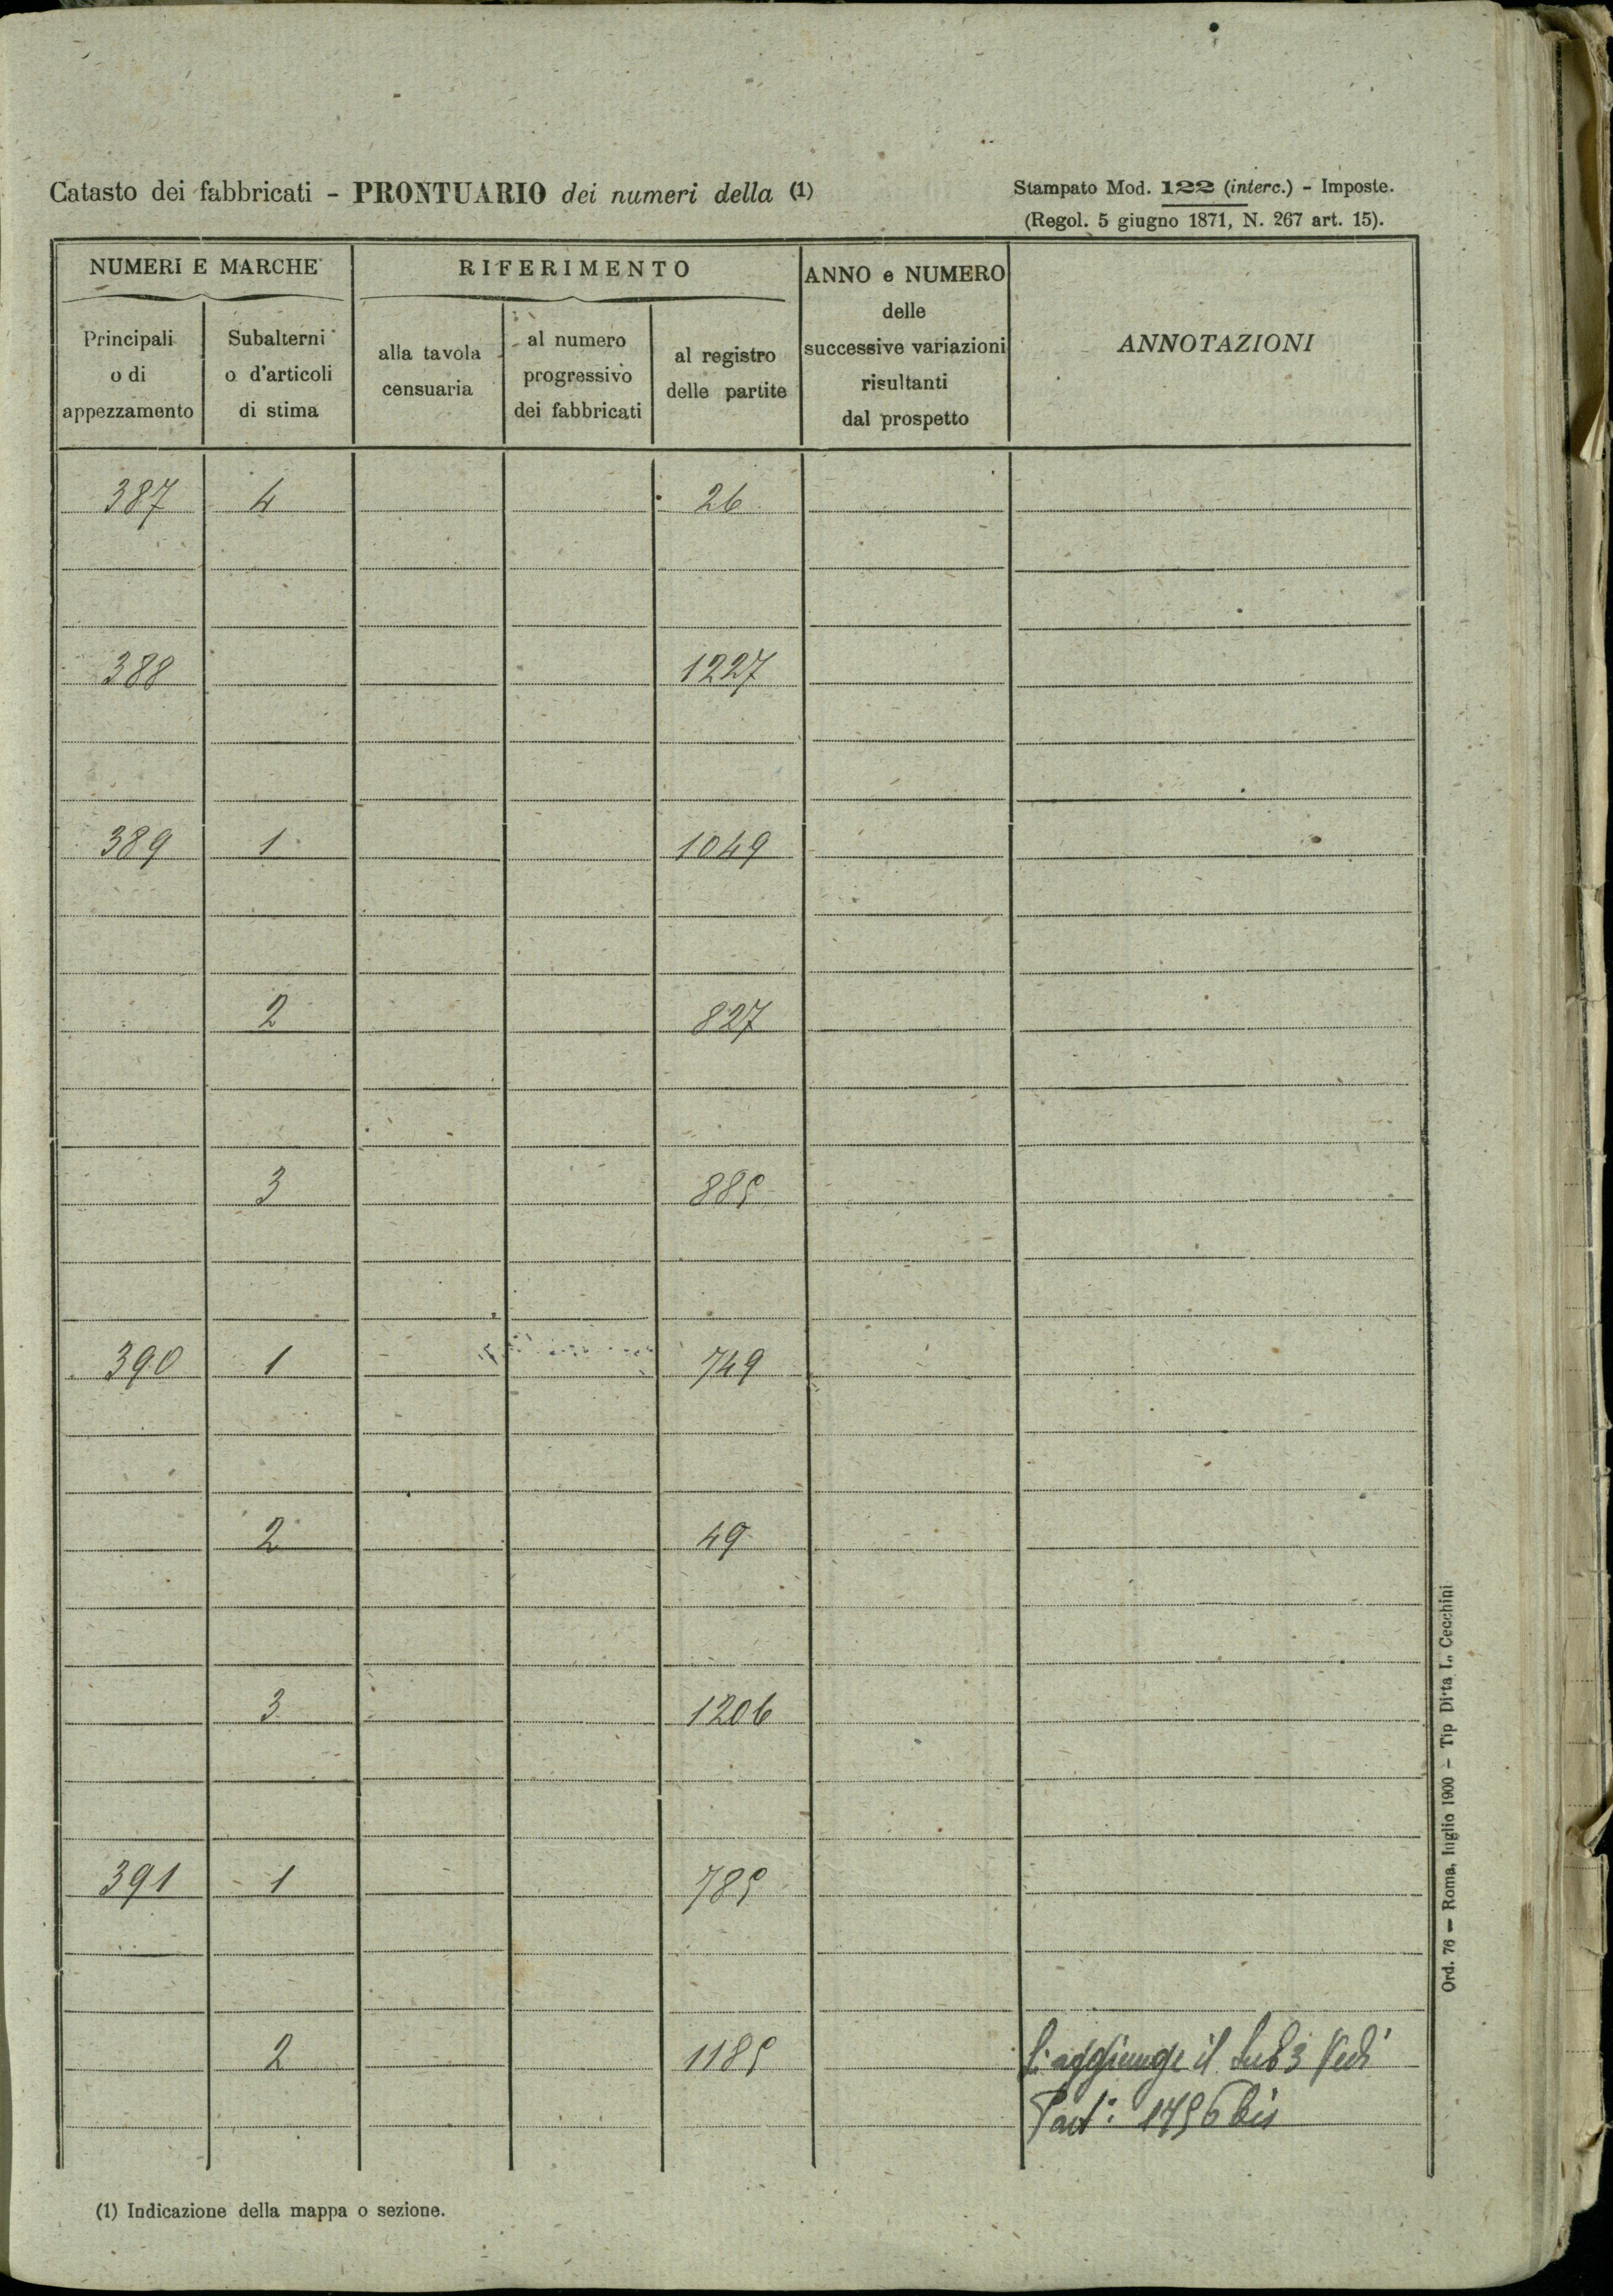 Catasto dei fabbricati - PRONTUARIO dei numeri della (1)
Stampato Mod. 122 (interc.) - Imposte.
(Regol. 5 giugno 1871, N. 267 art. 15).
NUMERI E MARCHE
RIFERIMENTO
ANNO e NUMERO
delle
successive variazioni
risultanti
dal prospetto
ANNOTAZIONI
Principali
o di
appezzamento
Subalterni
o d'articoli
di stima
alla tavola
censuaria
al numero
progressivo
dei fabbricati
al registro
delle partite
387 4 26
388 1227
389 1 1049
2 827
3 885
390 1 749
2 49
3 1206
391 1 785
2 1185 Si aggiunge il Sub 3 Vedi
Part: 1496 bis
(1) Indicazione della mappa o sezione.
Ord. 76 — Roma, luglio 1900 - Tip Ditta L. Cecchini